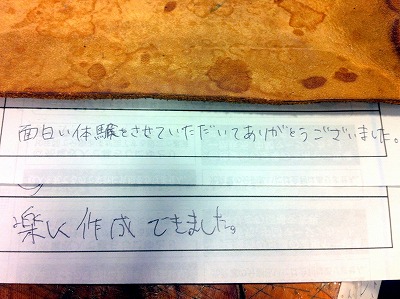 面白い体験をさせていただいてありがとうございました。
楽しく作成できました。